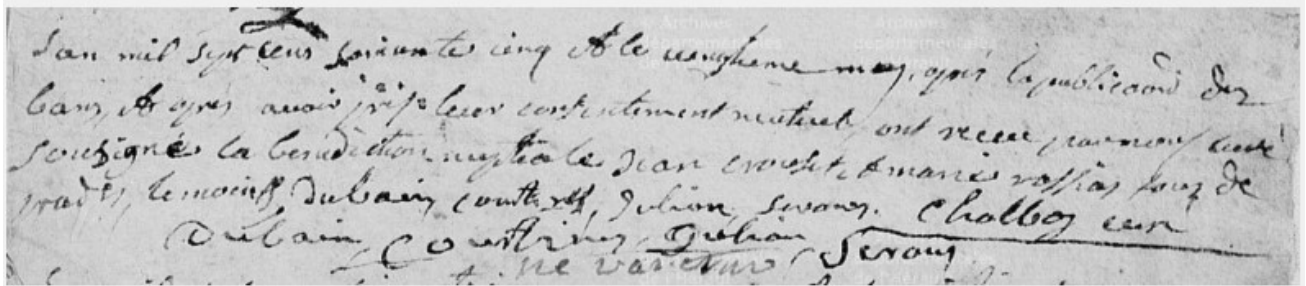 Lan mil sept cens soixante cinq & le vengtieme may, apres la publicaõn des
bans, & apres avoir pris leur consentement mutuel, ont receu par nous curé
sousigné la benediction nuptiale Jean crouset & marie rassias tous de
temoins Dubain, Julian, Serans. Chalbos curé
Dubain Julian Serans
ne varietur